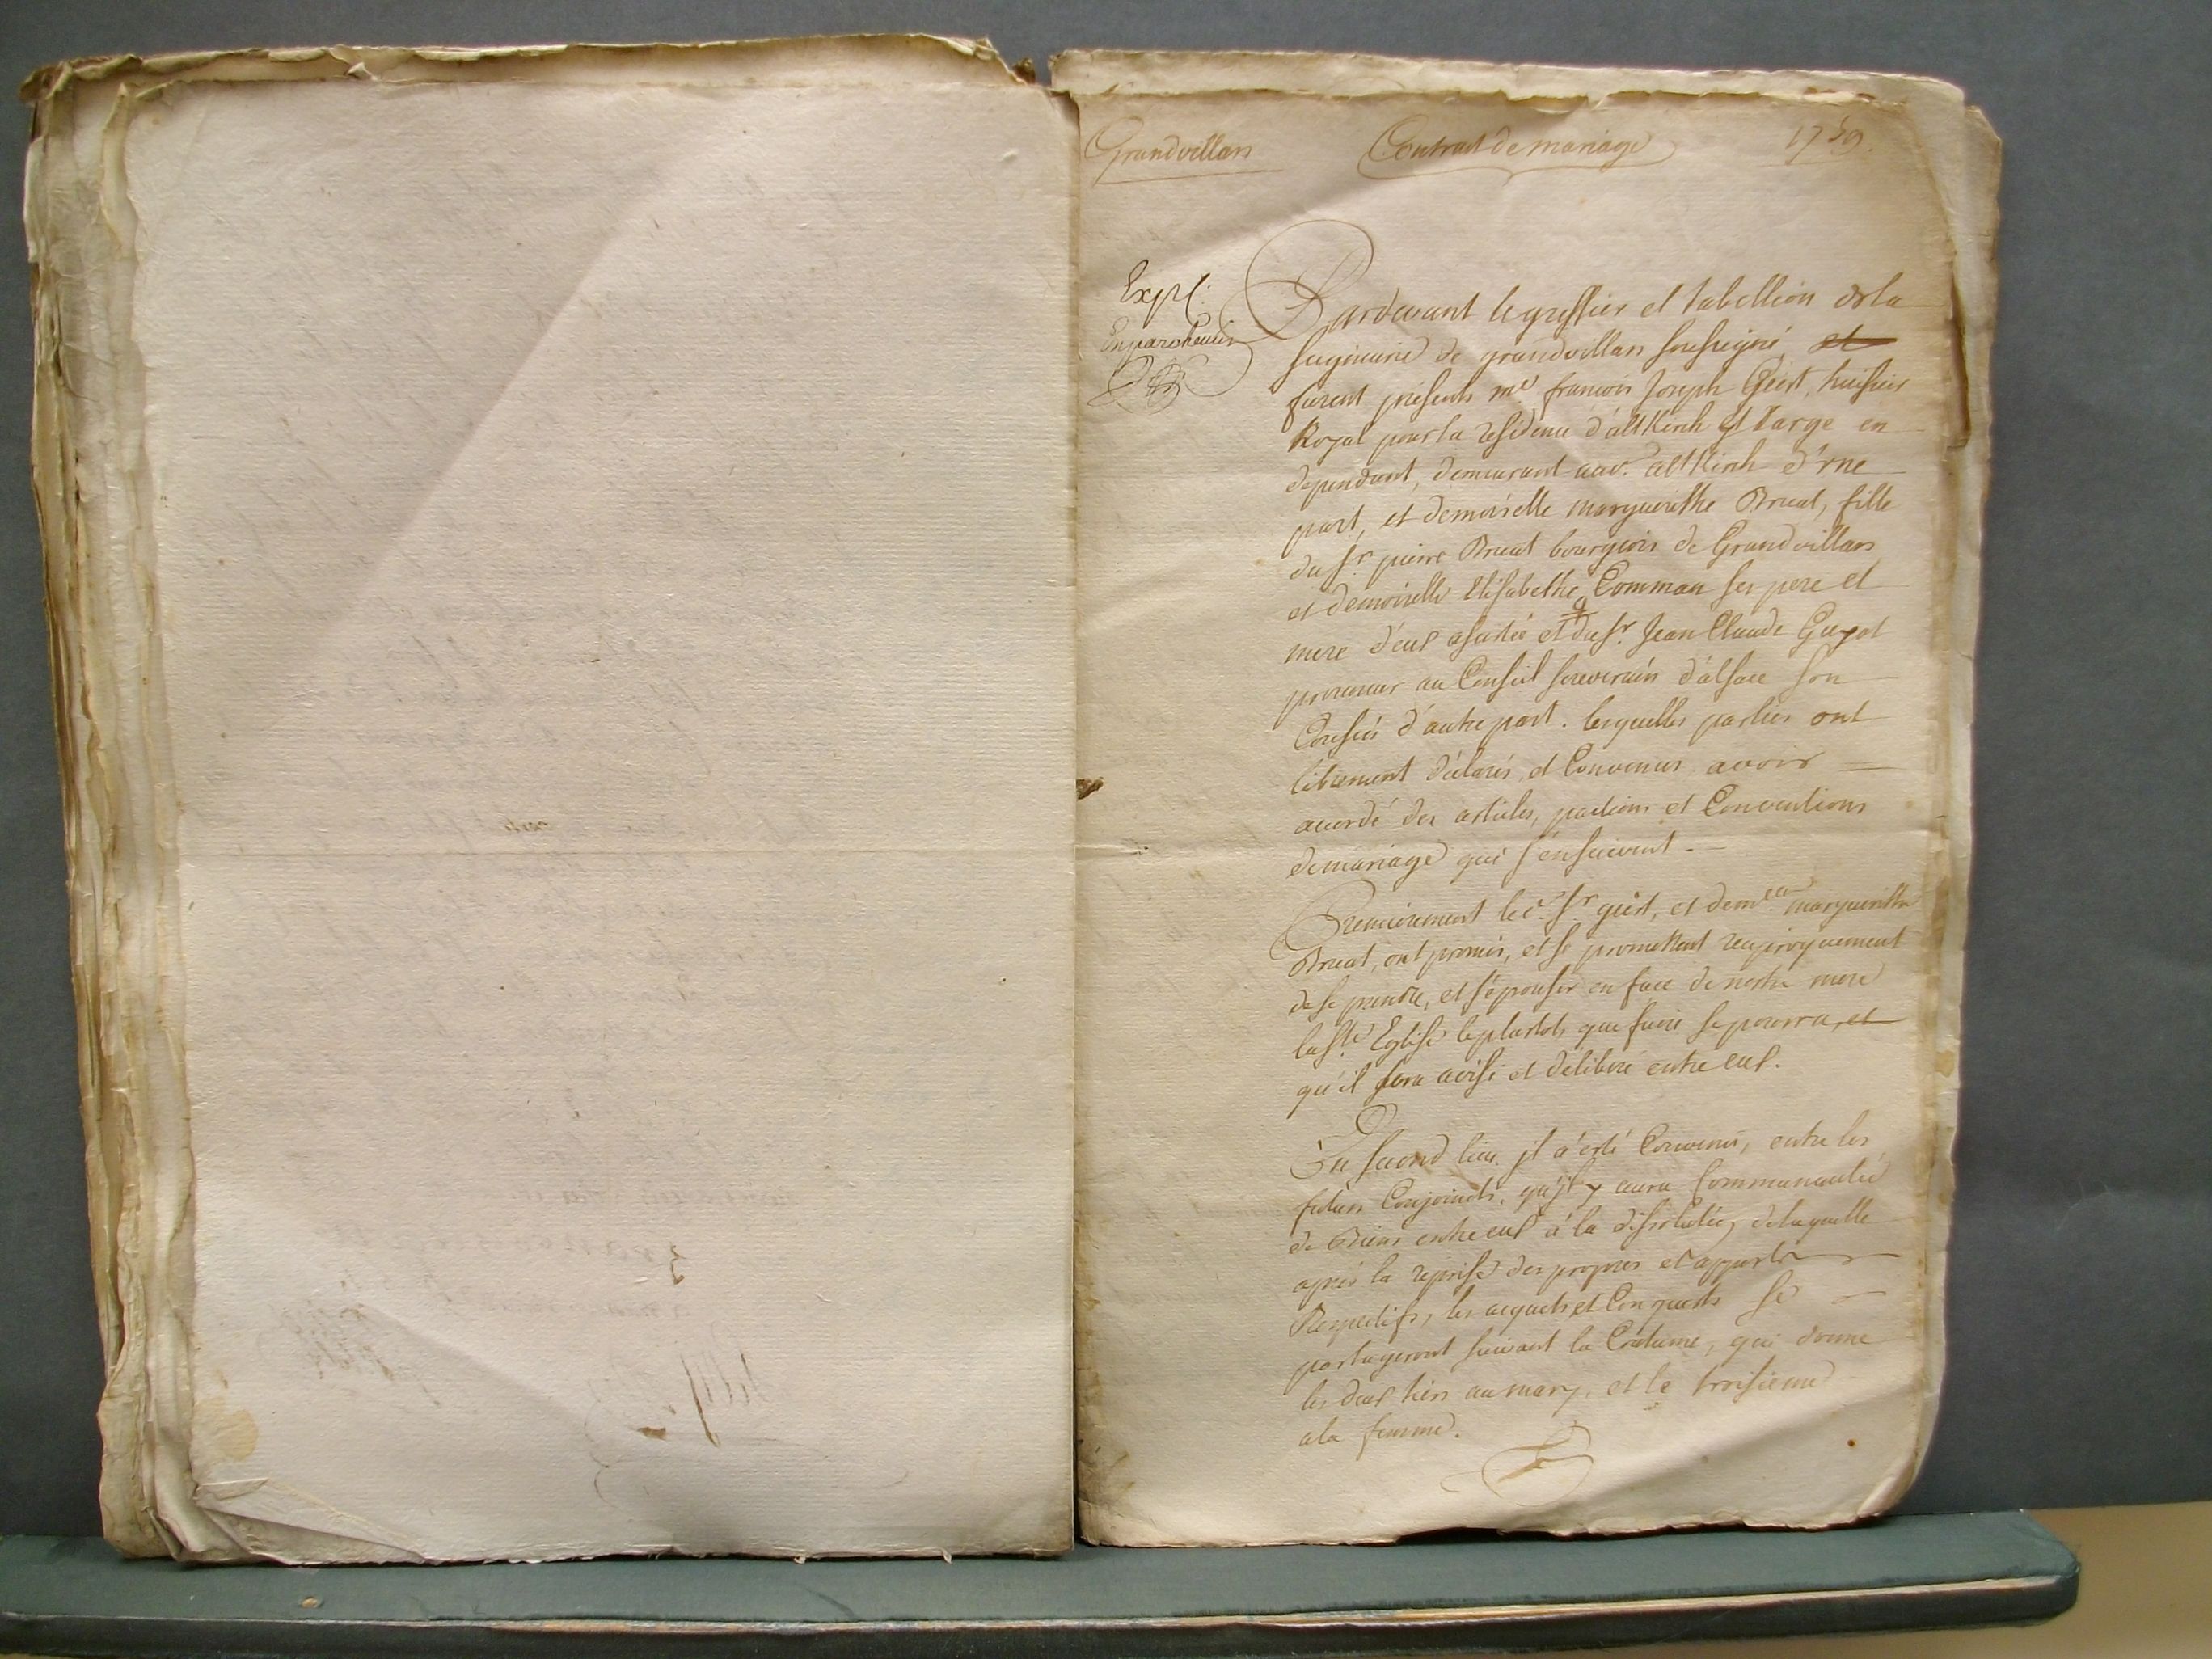 Grandvillars Contract de mariage 1759.
Expl:
En parchemin
Pardevant le greffier et tabellion de la
seigneurie de grandvillars soussigné et
furent présents me francois Joseph Geist, huissier
Royal pour la residence d'altkirch et Targe en
dependant, demeurant aud. altkirch d'vne
part, et demoiselle marguerithe Bruat, fille
du Sr. pierre Bruat bourgeois de Grandvillars
et demoiselle Elisabethe Comman ses pere et
mere d'eux assistée et du Sr. Jean Claude Guyot
procureur au Conseil souverain d'alsace son
Cousin d'autre part. lesquelles parties ont
librement déclarés, et Convenus avoir
accordé des articles, pactions et Conventions
de mariage qui s'ensuivent.
Premierement led. Sr geist, et demelle marguerithe
Bruat, ont promis, et se promettent reciproquement
de se prendre, et s'épouser en face de nostre mere
la Ste Eglise le plustots que faire se pourra, et
qu'il sera avisé et délibéré entre eux.
En second lieu jl a esté Convenu, entre les
futurs Conjoincts, qu'jl y aura Communauté
de Biens entre eux à la dissolution de laquelle
après la reprise des propres et apports
Respectifs, les acquets et Conquests se
partageront suivant la Coutume, qui donne
les deux tiers au mary, et le troisieme
a la femme.